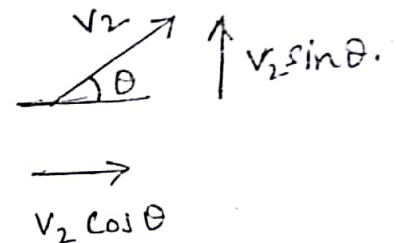 V2
θ
V2 sin θ.
V2 cos θ